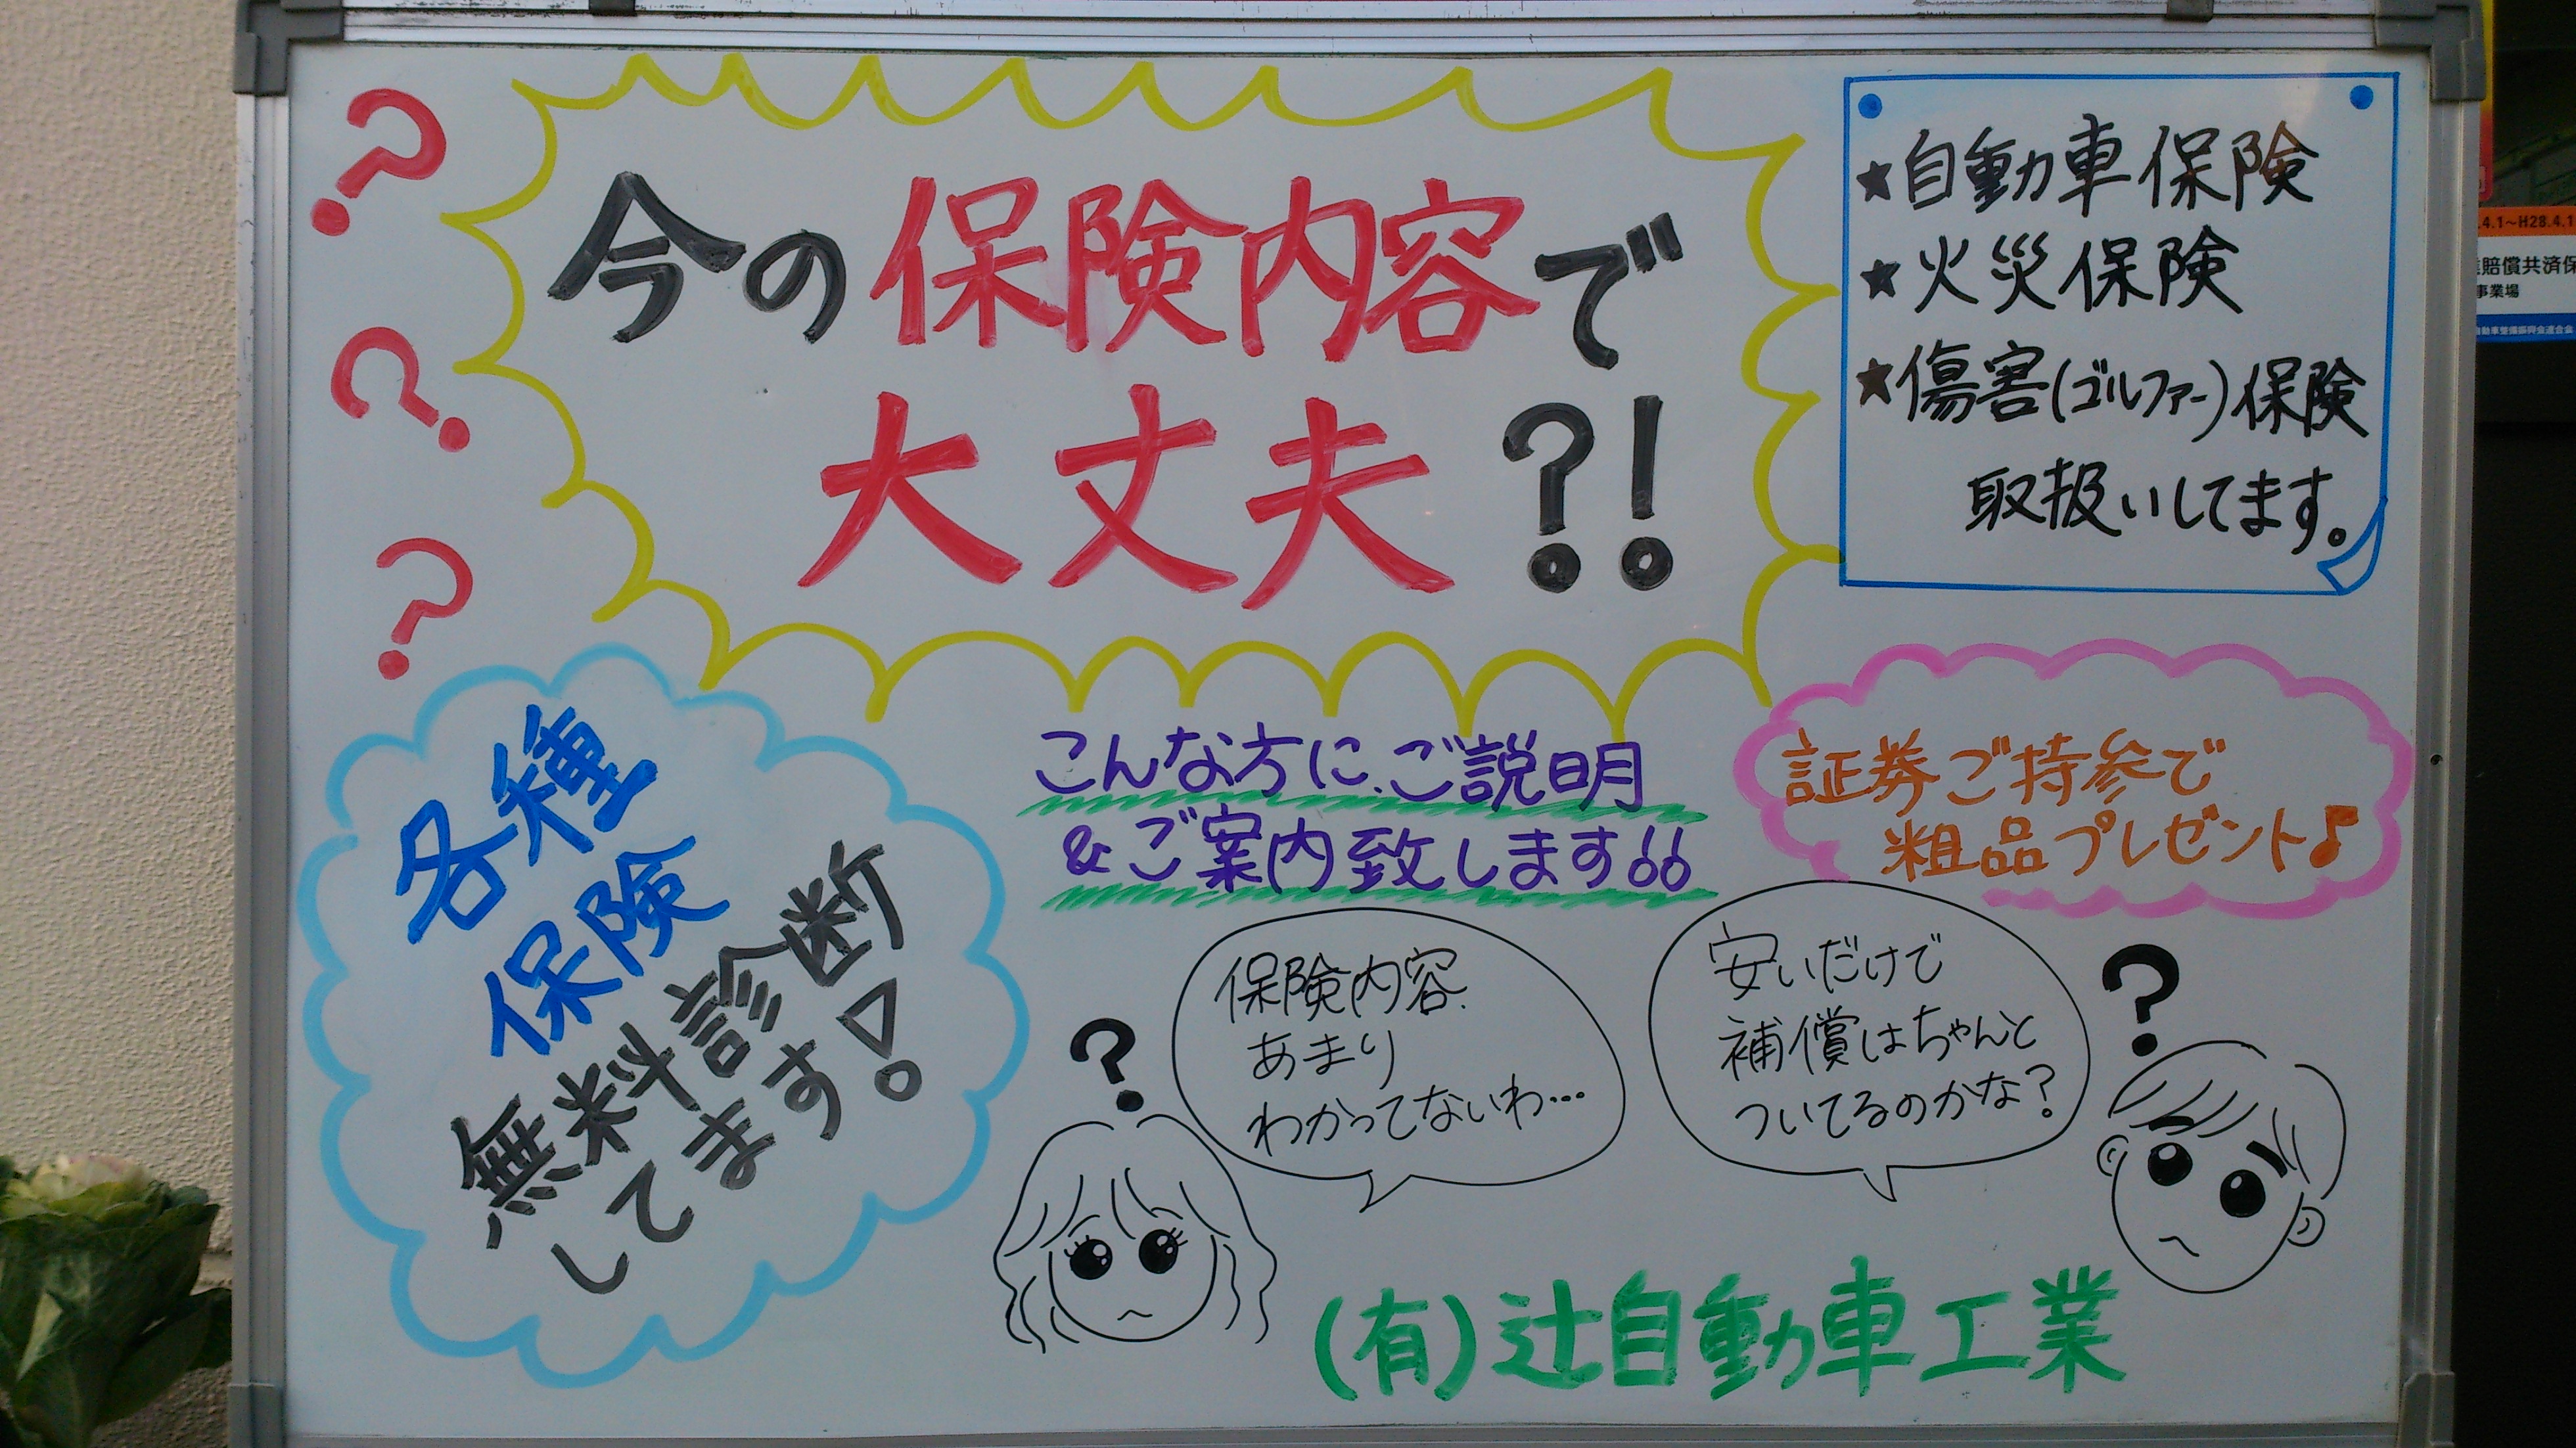 ?
?
?
今の保険内容で
大丈夫?!
★自動車保険
★火災保険
★傷害(ゴルファー)保険
取扱いしてます。
各種
保険
無料診断
してます!
こんな方に、ご説明
&ご案内致します
証券ご持参で
粗品プレゼント♪
?
保険内容、
あまり
わかってないわ…
安いだけで
補償はちゃんと
ついてるのかな?
?
(有)辻自動車工業
.4.1～H28.4.1
賠償共済保
事業場
自動車整備振興会連合会